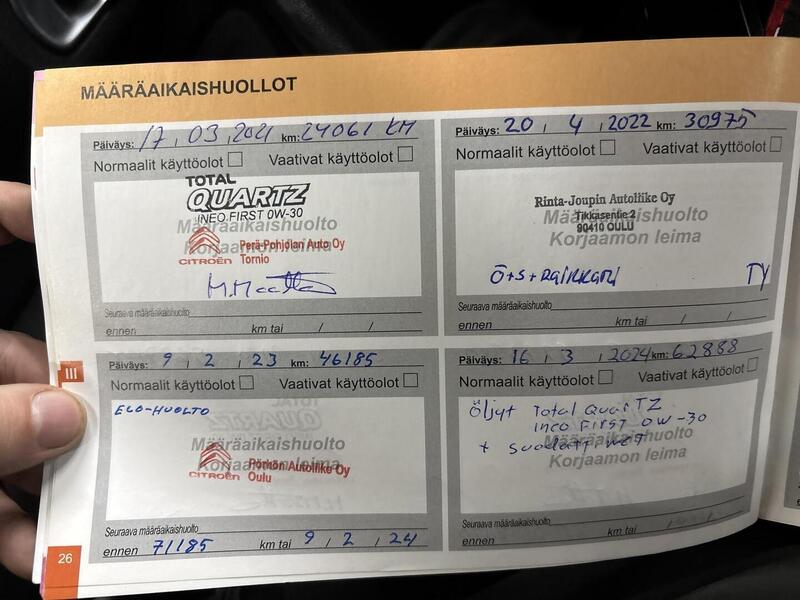 MÄÄRÄAIKAISHUOLLOT
Päiväys: 17, 03, 2021 km: 24061 KM
Normaalit käyttöolot Vaativat käyttöolot
TOTAL
QUARTZ
INEO FIRST 0W-30
Määräaikaishuolto
Korjaamon leima
CITROËN
Perä-Pohjolan Auto Oy
Tornio
Seuraava määräaikaishuolto
ennen km tai / /
Päiväys: 20 / 4 / 2022 km: 30975
Normaalit käyttöolot Vaativat käyttöolot
Rinta-Joupin Autoliike Oy
Tikkasentie 2
90410 OULU
Määräaikaishuolto
Korjaamon leima
Ö+S+RAIKKARI TY
Seuraava määräaikaishuolto
ennen km tai / /
III
Päiväys: 9 / 2 / 23 km: 46185
Normaalit käyttöolot Vaativat käyttöolot
ECO-HUOLTO
Määräaikaishuolto
Korjaamon leima
CITROËN
Pörhön Autoliike Oy
Oulu
Seuraava määräaikaishuolto
ennen 71185 km tai 9 / 2 / 24
Päiväys: 16 / 3 / 2024 km: 62888
Normaalit käyttöolot Vaativat käyttöolot
Öljyt Total QuarTZ
ineo FirST 0W-30
+ suodattimet
Määräaikaishuolto
Korjaamon leima
Seuraava määräaikaishuolto
ennen km tai / /
26